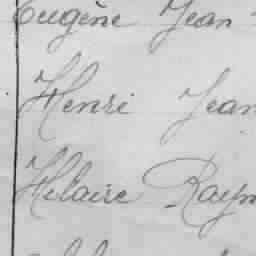 Eugène Jean
Henri Jean
Hilaire Raym